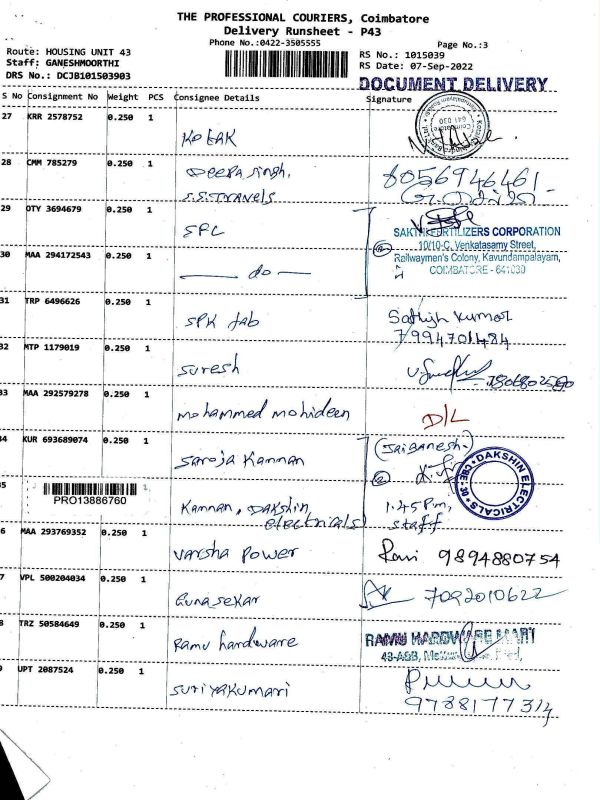 THE PROFESSIONAL COURIERS, Coimbatore
Delivery Runsheet - P43
Phone No.:0422-3505555
Page No.:3
Route: HOUSING UNIT 43
RS No.: 1015039
Staff: GANESHMOORTHI
RS Date: 07-Sep-2022
DRS No.: DCJB101503903
DOCUMENT DELIVERY
S No Consignment No Weight PCS Consignee Details Signature
27 KRR 2578752 0.250 1 KOTAK
Coimbatore
641 030
28 CMM 785279 0.250 1 Deepa Singh,
S.S.Travels
8056946461
29 OTY 3694679 0.250 1 SFC
SAKTHI FERTILIZERS CORPORATION
10/10-C, Venkatasamy Street,
Railwaymen's Colony, Kavundampalayam,
COIMBATORE - 641030
30 MAA 294172543 0.250 1 — do —
31 TRP 6496626 0.250 1 SPK fab
Sathish Kumar
7994701484
32 MTP 1179019 0.250 1 Suresh
33 MAA 292579278 0.250 1 Mohammed Mohideen D/L
34 KUR 693689074 0.250 1 Saroja Kannan
(Jaiganesh.)
DAKSHIN ELECTRICALS
CBE-30
35 PRO13886760
Kannan, Dakshin
electricals
1.45 Pm,
staff
6 MAA 293769352 0.250 1 Varsha Power Ravi 9894880754
7 VPL 500204034 0.250 1 Gunasekar 7092010622
8 TRZ 50584649 0.250 1 Ramu hardware
RAMU HARDWARE MART
9 UPT 2087524 0.250 1 Suriyakumari
9788177314